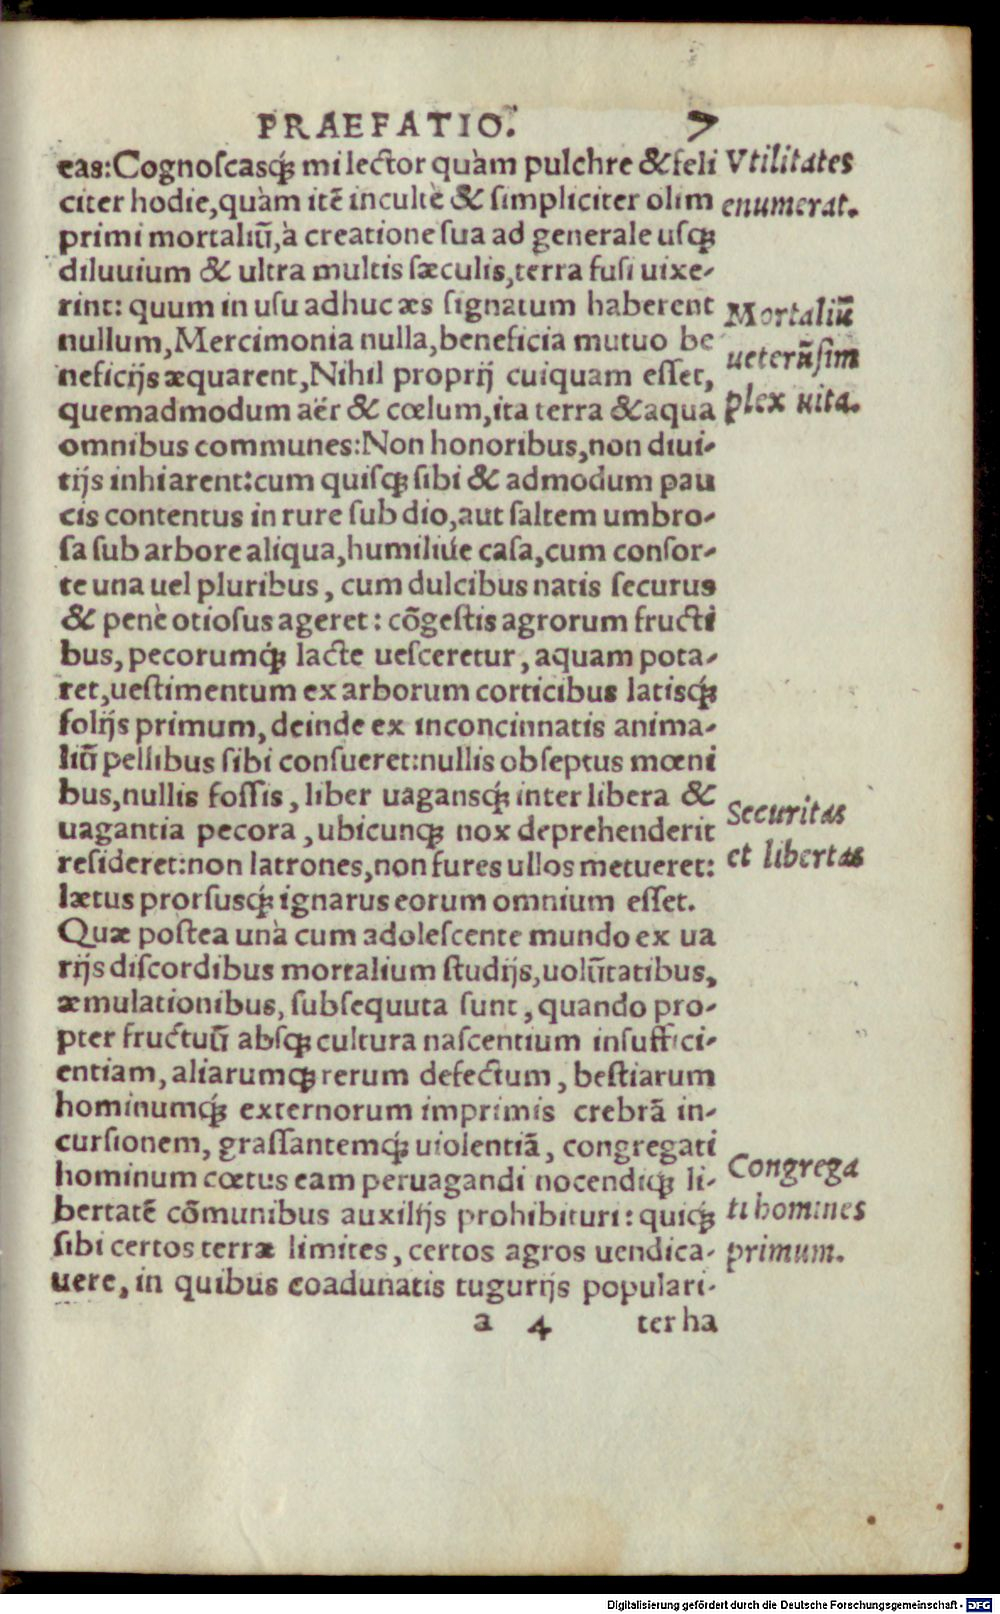 PRAEFATIO. 7
eas: Cognoscasq́; mi lector quàm pulchre & feli
citer hodie, quàm itẽ incultè & simpliciter olim
primi mortaliũ, à creatione sua ad generale usq;
diluuium & ultra multis sæculis, terra fusi uixe-
rint: quum in usu adhuc æs signatum haberent
nullum, Mercimonia nulla, beneficia mutuo be
neficijs æquarent, Nihil proprij cuiquam esset,
quemadmodum aër & cœlum, ita terra & aqua
omnibus communes: Non honoribus, non diui-
tijs inhiarent: cum quisq; sibi & admodum pau
cis contentus in rure sub dio, aut saltem umbro-
sa sub arbore aliqua, humiliue casa, cum consor-
te una uel pluribus, cum dulcibus natis securus
& penè otiosus ageret: cõgestis agrorum fructi
bus, pecorumq́; lacte uesceretur, aquam pota-
ret, uestimentum ex arborum corticibus latisq́;
folijs primum, deinde ex inconcinnatis anima-
liũ pellibus sibi consueret: nullis obseptus mœni
bus, nullis fossis, liber uagansq́; inter libera &
uagantia pecora, ubicunq; nox deprehenderit
resideret: non latrones, non fures ullos metueret:
lætus prorsusq́; ignarus eorum omnium esset.
Quæ postea unà cum adolescente mundo ex ua
rijs discordibus mortalium studijs, uolũtatibus,
æmulationibus, subsequuta sunt, quando pro-
pter fructuũ absq; cultura nascentium insuffici-
entiam, aliarumq; rerum defectum, bestiarum
hominumq́; externorum imprimis crebrã in-
cursionem, grassantemq́; uiolentiã, congregati
hominum cœtus eam peruagandi nocendiq; li-
bertatẽ cõmunibus auxilijs prohibituri: quiq́;
sibi certos terræ limites, certos agros uendica-
uere, in quibus coadunatis tugurijs populari-
a 4 ter ha
Vtilitates
enumerat.
Mortaliũ
ueterũ sim
plex uita.
Securitas
et libertas
Congrega
ti homines
primum.
Digitalisierung gefördert durch die Deutsche Forschungsgemeinschaft - DFG